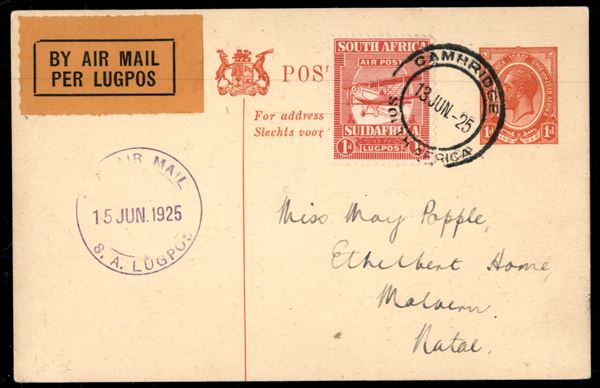 BY AIR MAIL
PER LUGPOS
POS
For address
Slechts voor
SOUTH AFRICA
AIR POST
SUIDAFRIKA
1D LUGPOST
CAMBRIDGE
13 JUN.-25
SOUTH AFRICA
1d 1d
AIR MAIL
15 JUN.1925
S. A. LUGPOS
Miss May Popple,
Ethelbert Home,
Malvern.
Natal.